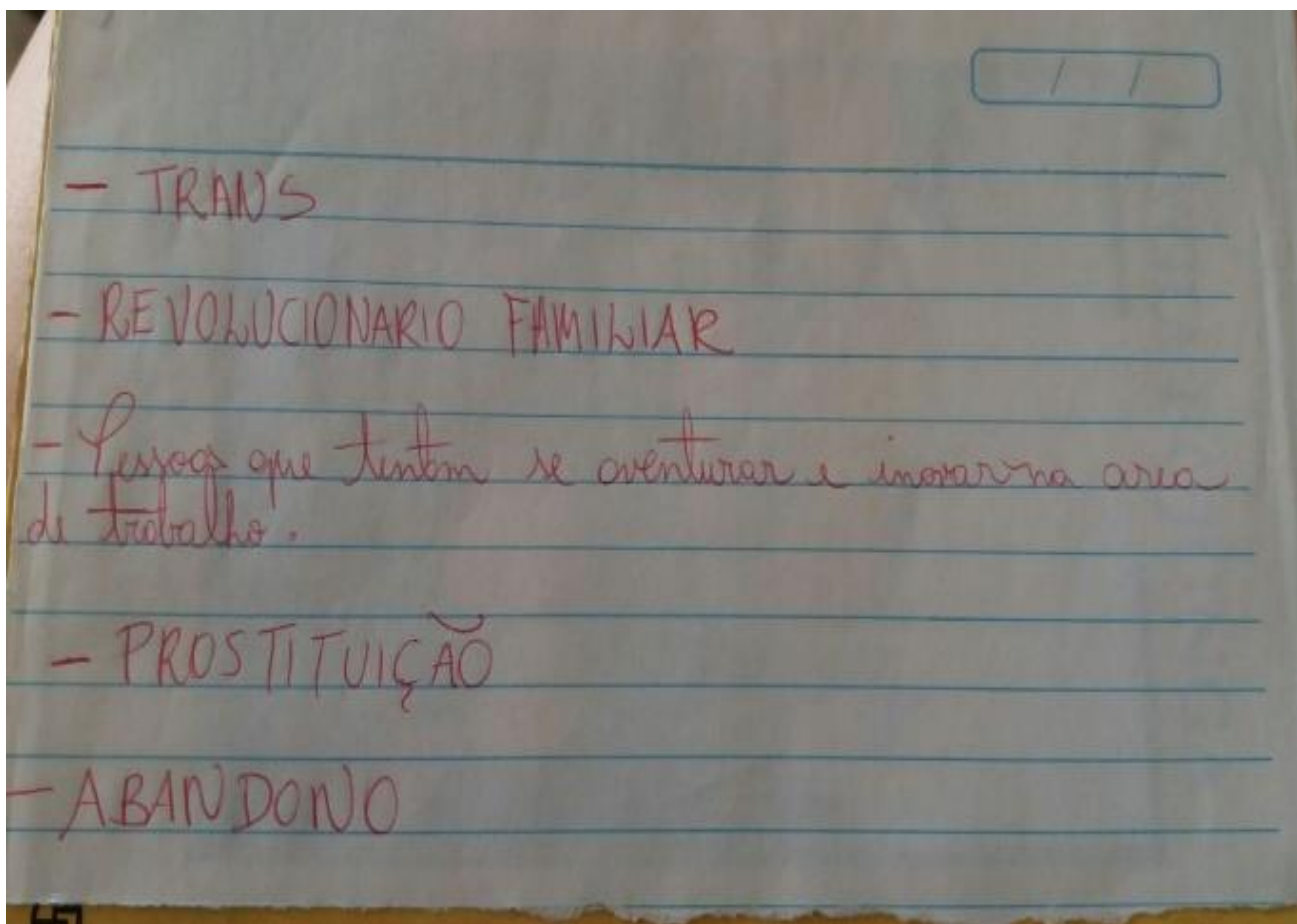 - TRANS
- REVOLUCIONARIO FAMILIAR
- Pessoas que tentam se aventurar e inovar na area
de trabalho.
- PROSTITUIÇÃO
- ABANDONO